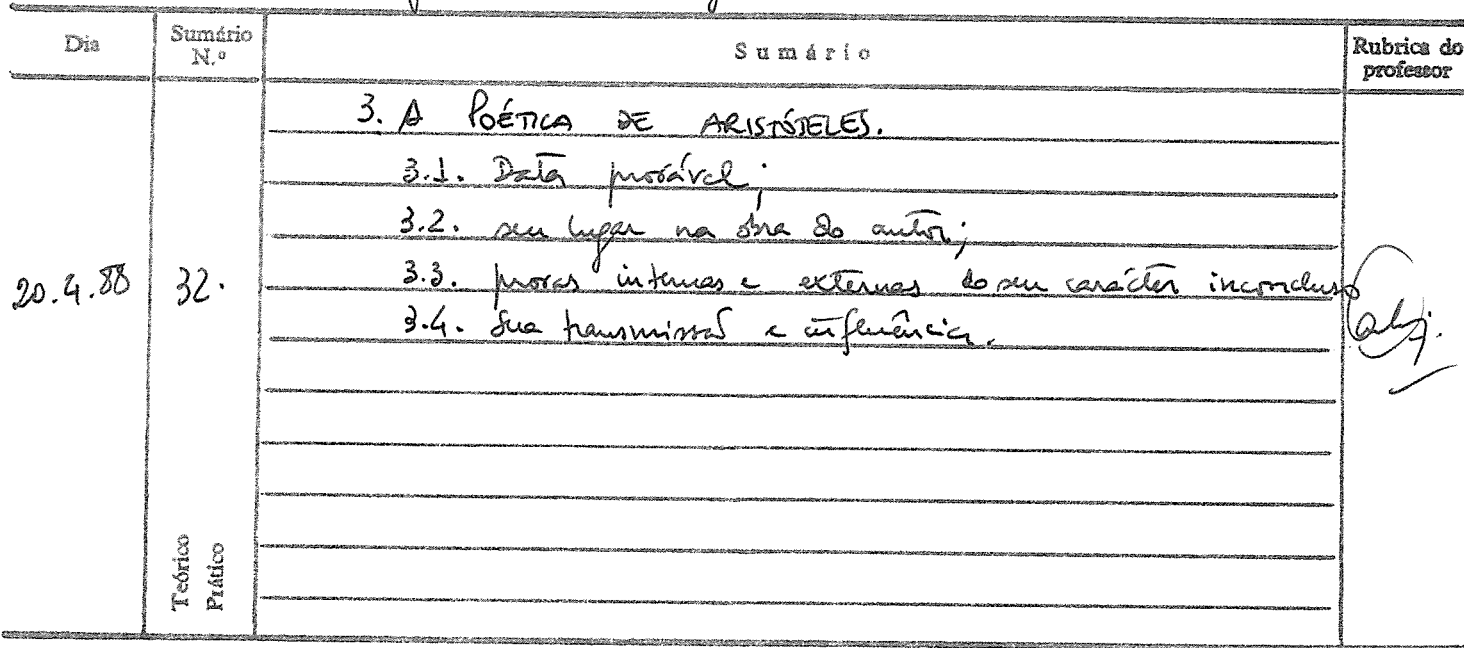 Dia Sumário N.º Sumário Rubrica do professor
3. A POÉTICA DE ARISTÓTELES.
3.1. Data provável;
3.2. seu lugar na obra do autor;
20.4.88 32. 3.3. provas internas e externas do seu carácter inconcluso
3.4. Sua transmissão e influência.
Teórico
Prático